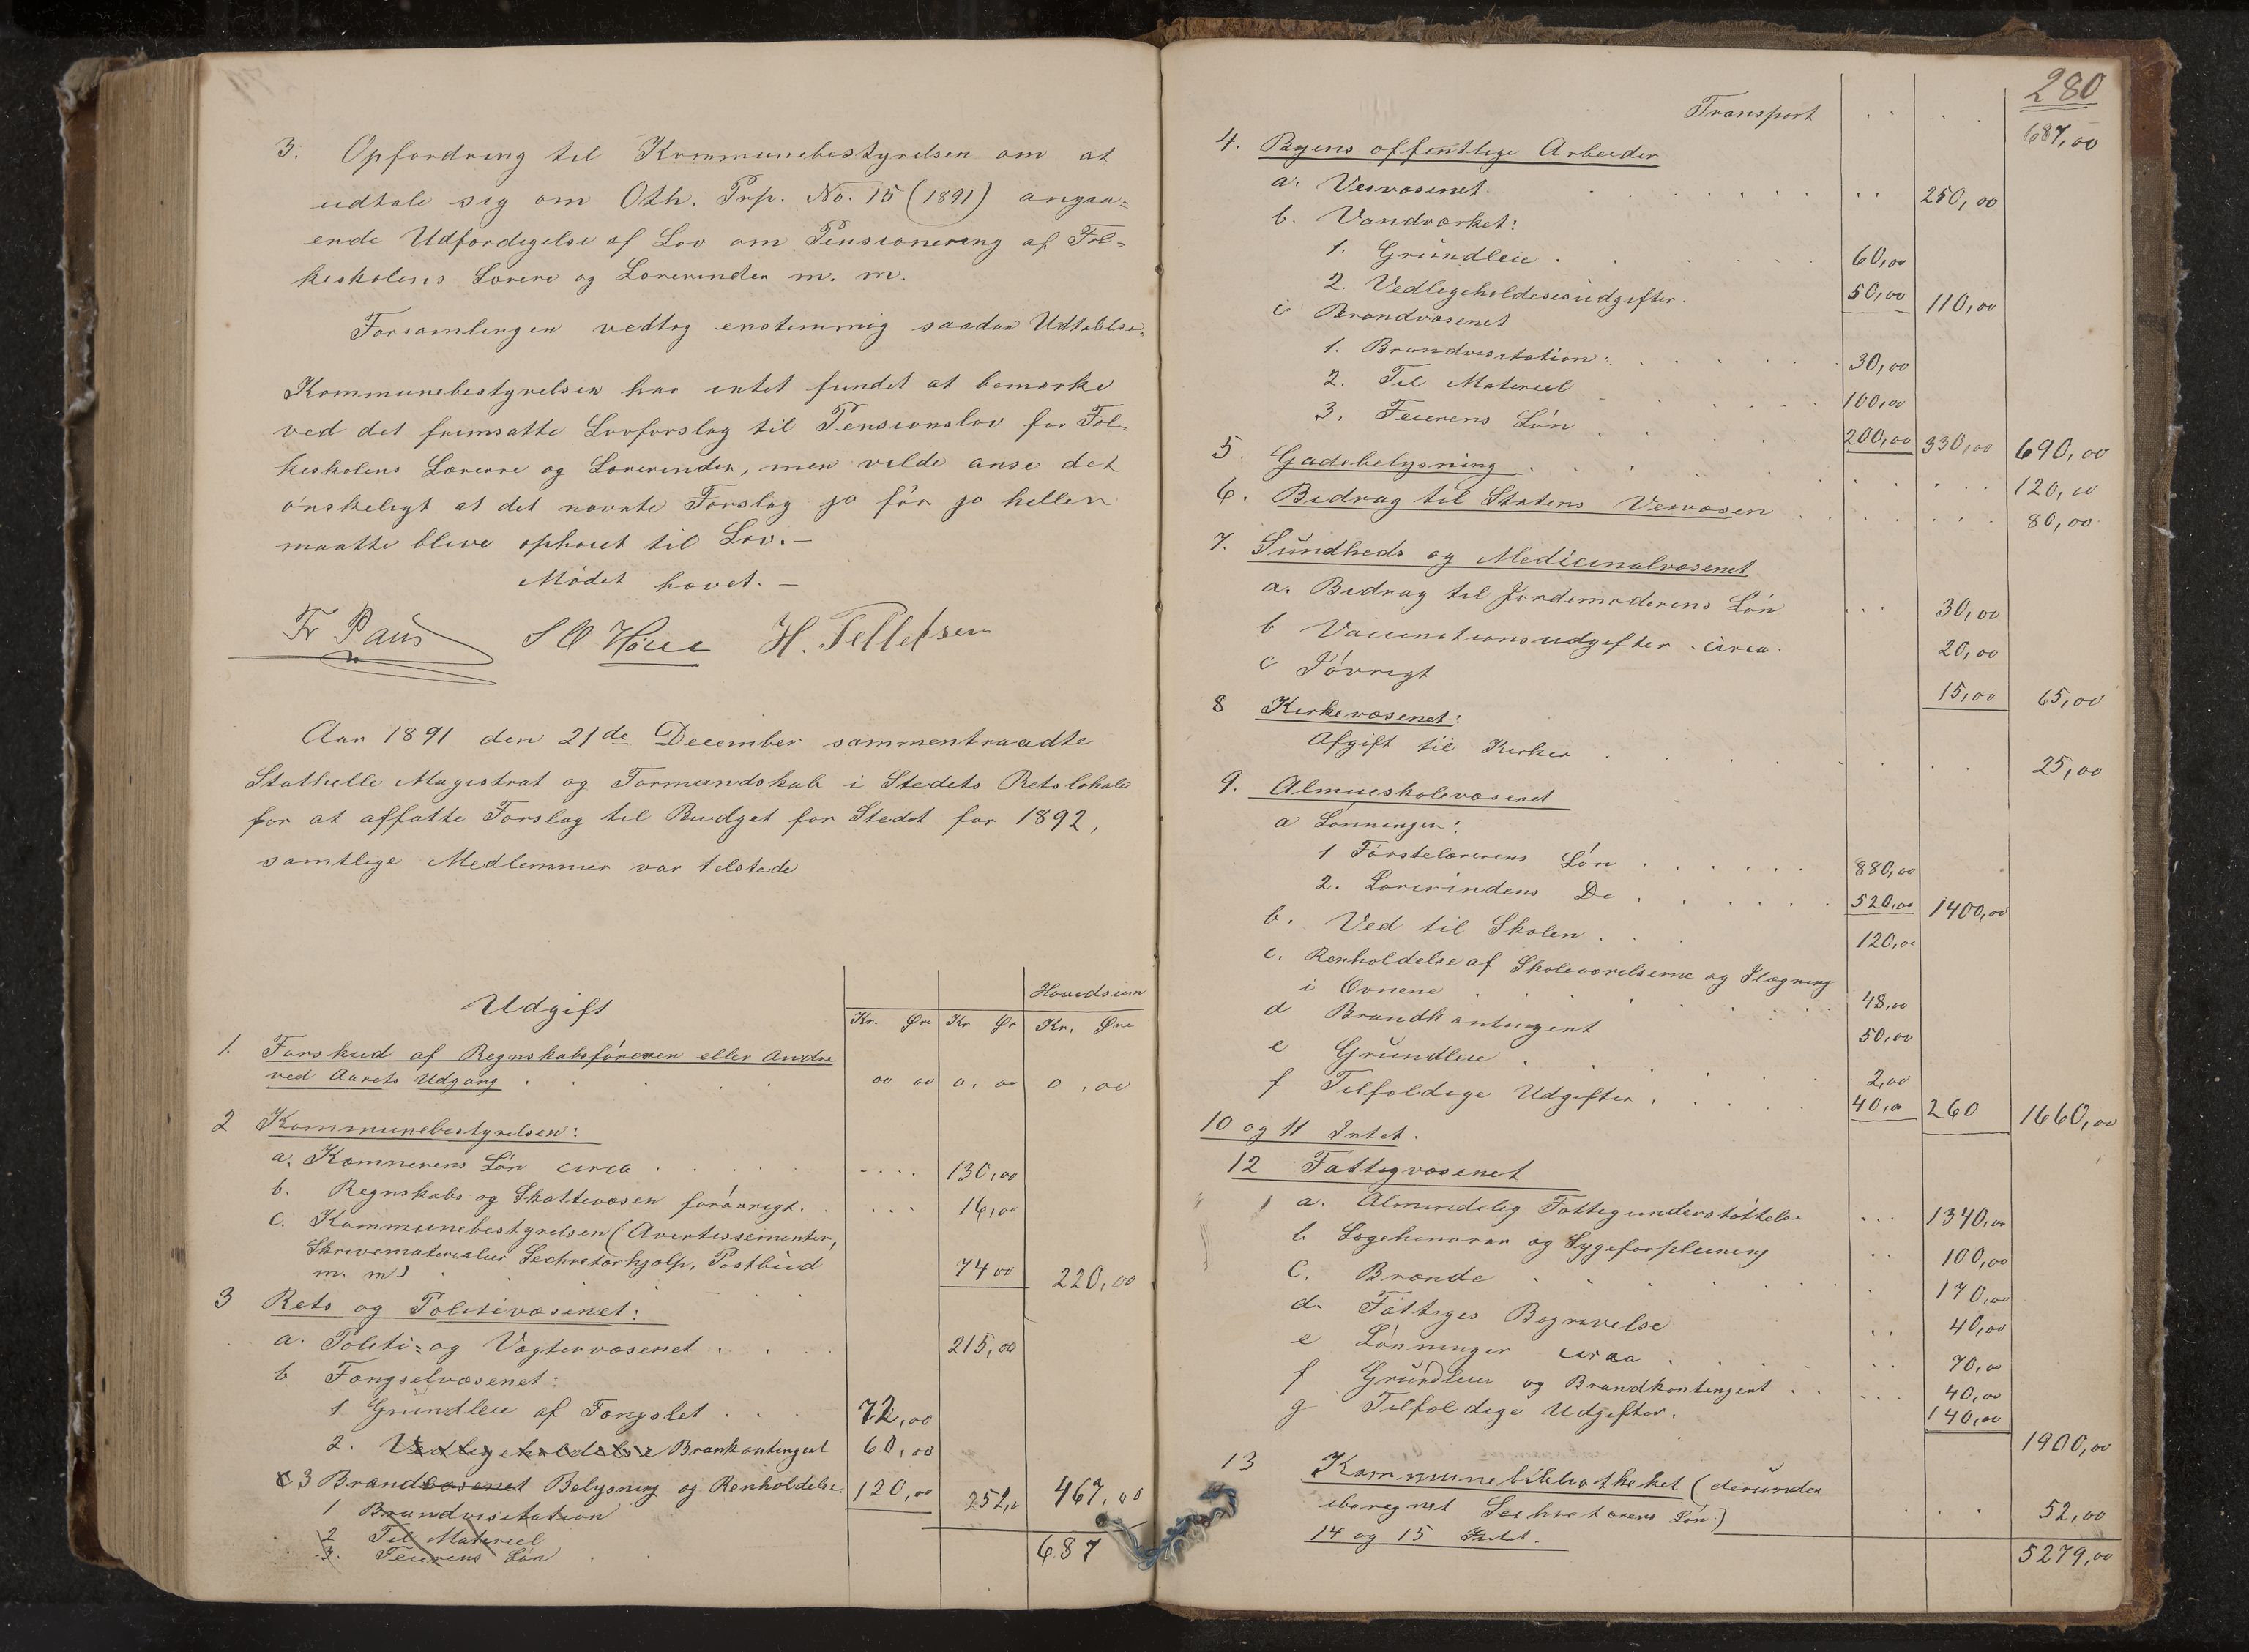 3. Opfordring til Kommunebestyrelsen om at
udtale sig om Oth. Prp. No. 15 (1891) angaa=
ende Udfærdigelse af Lov om Pensionering af Fol=
keskolens Lærere og Lærerinder m. m.
Forsamlingen vedtog enstemmig saadan Udtalelse.
Kommunebestyrelsen har intet fundet at bemærke
ved det fremsatte Lovforslag til Pensionslov for Fol-
keskolens Lærere og Lærerinder, men vilde anse det
ønskeligt at det nævnte Forslag jo før jo heller
maatte blive ophøiet til Lov. —
Mødet hævet. —
Fr Paus H. Tellefsen
Aar 1891 den 21de December sammentraadte
Stathelle Magistrat og Formandskab i Stedets Retslokale
for at affatte Forslag til Budget for Stedet for 1892,
samtlige Medlemmer var tilstede
Udgift Hovedsum
Kr. Øre Kr Ør Kr. Øre
1. Forskud af Regnskabsføreren eller Andre
ved Aarets Udgang 00 00 0. 00 0,00
2 Kommunebestyrelsen:
a. Kæmnerens Løn circa 130,00
b. Regnskabs- og Skattevæsen forøvrigt. 16,00
c. Kommunebestyrelsen (Avertissementer,
Skrivematerialier Sechretærhjælp, Postbud
m. m) 74 00 220,00
3 Rets og Politivæsenet:
a. Politi= og Vægtervæsenet 215,00
b Fængselvæsenet:
1 Grundleie af Fængslet 72,00
2. Vedligeholdelse Brankontingent 60,00
c 3 Brandvæsenet Belysning og Renholdelse 120,00 252,0 467,00
1 Brandvisitation
2 Til Materiel
3. Feierens Løn
687
280
Transport 687,00
4. Byens offentlige Arbeider
a. Veivæsenet 250,00
b. Vandværket:
1. Grundleie 60,00
2. Vedligeholdesesudgifter 50,00 110,00
c Brandvæsenet
1. Brandvisitation 30,00
2. Til Materiel 100,00
3. Feierens Løn 200,00 330,00 690,00
5. Gadebelysning 120,00
6. Bidrag til Statens Veivæsen 80,00
7. Sundheds og Medicinalvæsenet
a. Bidrag til Jordemoderens Løn 30,00
b Vaccinationsudgifter circa. 20,00
c Iøvrigt 15,00 65,00
8 Kirkevæsenet:
Afgift til Kirken 25,00
9. Almueskolevæsenet
a Lønninger:
1 Førstelærerens Løn 880,00
2. Lærerindens Do 520,00 1400,00
b. Ved til Skolen 120,00
c. Renholdelse af Skoleværelserne og Ilægning
i Ovnene 48,00
d Brandkontingent 50,00
e Grundleie 2,00
f Tilfældige Udgifter 40,0 260 1660,00
10 og 11 Intet.
12 Fattigvæsenet
a. Almindelig Fattigunderstøttelse 1340,00
b Lægehonorar og Sygeforpleining 100,00
c. Brænde 170,00
d. Fattiges Begravelse 40,00
e Lønninger circa 70,00
f Grundleie og Brandkontingent 40,00
g Tilfældige Udgifter. 140,00
1900,00
13 Kommunebibliotheket (derunder
iberegnet Sechretærens Løn) 52,00
14 og 15 Intet.
5279,00